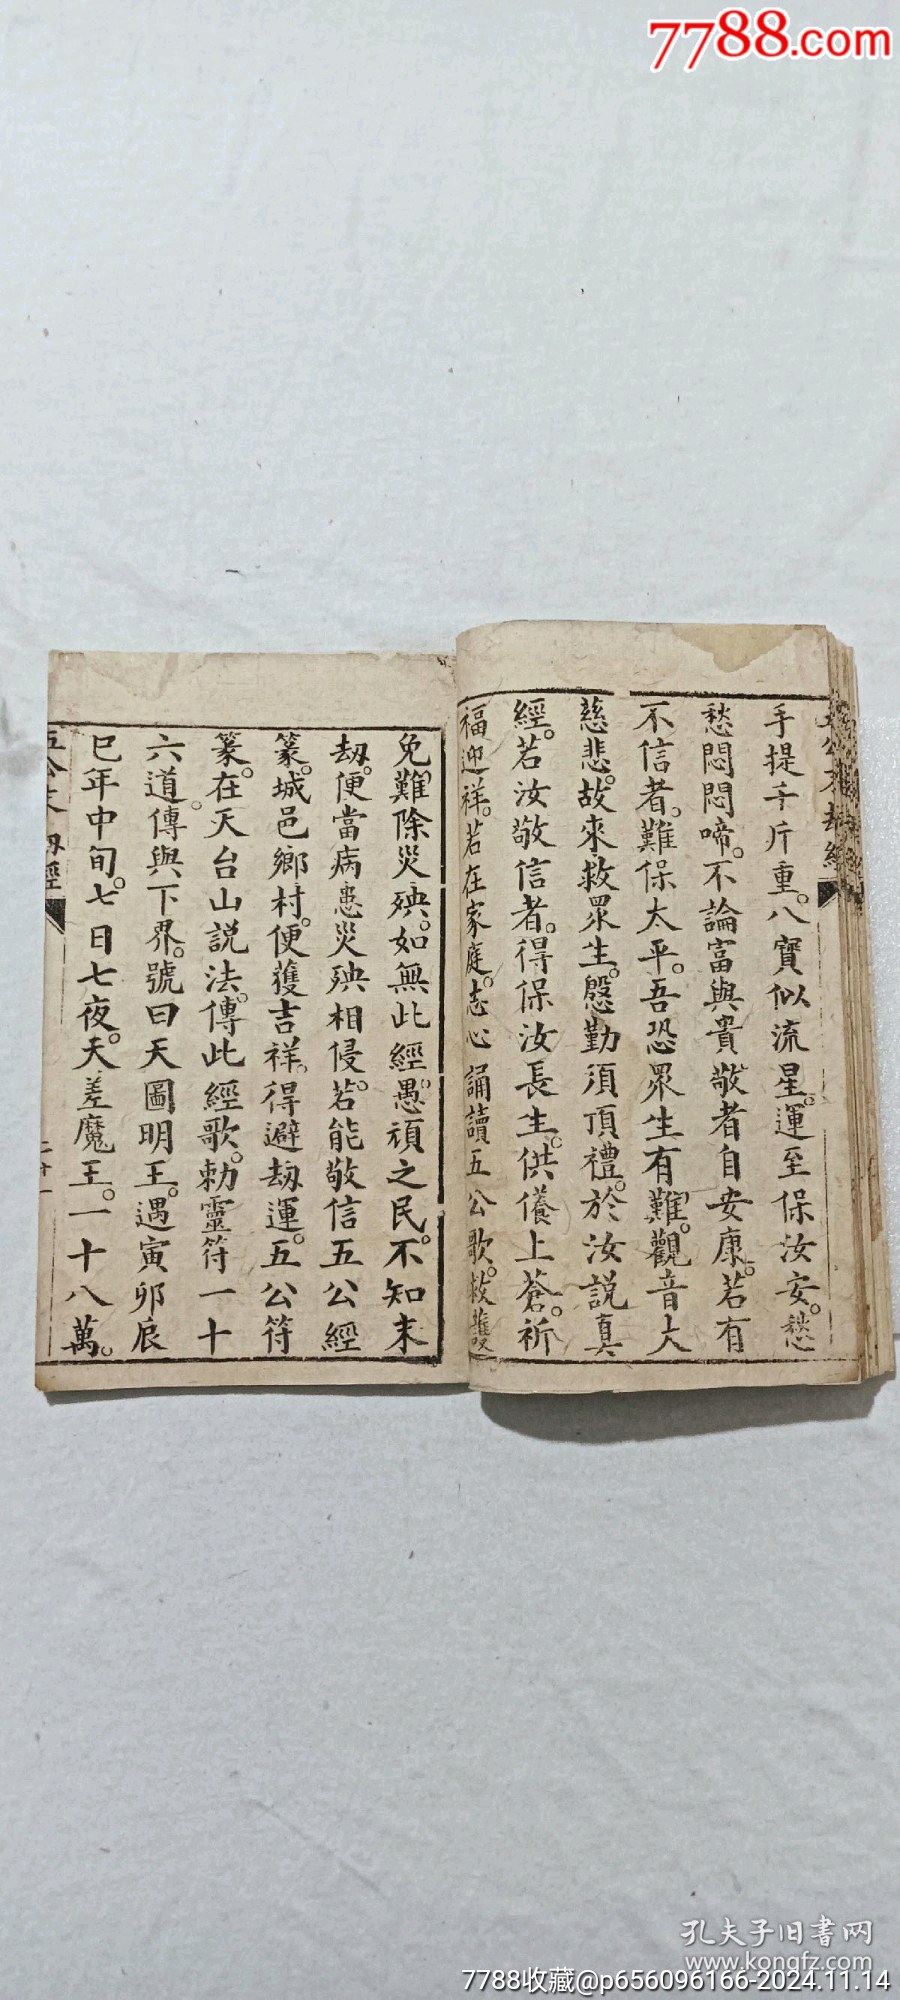 7788.com
五公末劫經
手提千斤重。八寶似流星。運至保汝安。愁
愁悶悶啼。不論富與貴敬者自安康。若有
不信者。難保太平。吾恐眾生有難。觀音大
慈悲。故來救眾生。慇勤須頂禮。於汝説真
經。若汝敬信者。得保汝長生。供養上蒼。祈
福迎祥。若在家庭。志心誦讀五公歌。救護
免難除災殃。如無此經。愚頑之民。不知末
劫。便當病患災殃相侵。若能敬信五公經
篆。城邑鄉村。便獲吉祥。得避劫運。五公符
篆。在天台山説法。傳此經歌。勅靈符一十
六道。傳與下界。號曰天圖明王。遇寅卯辰
巳年中旬。七日七夜。天差魔王。一十八萬。
五公末劫經
二十一
孔夫子旧書网
www.kongfz.com
7788收藏@p656096166-2024.11.14